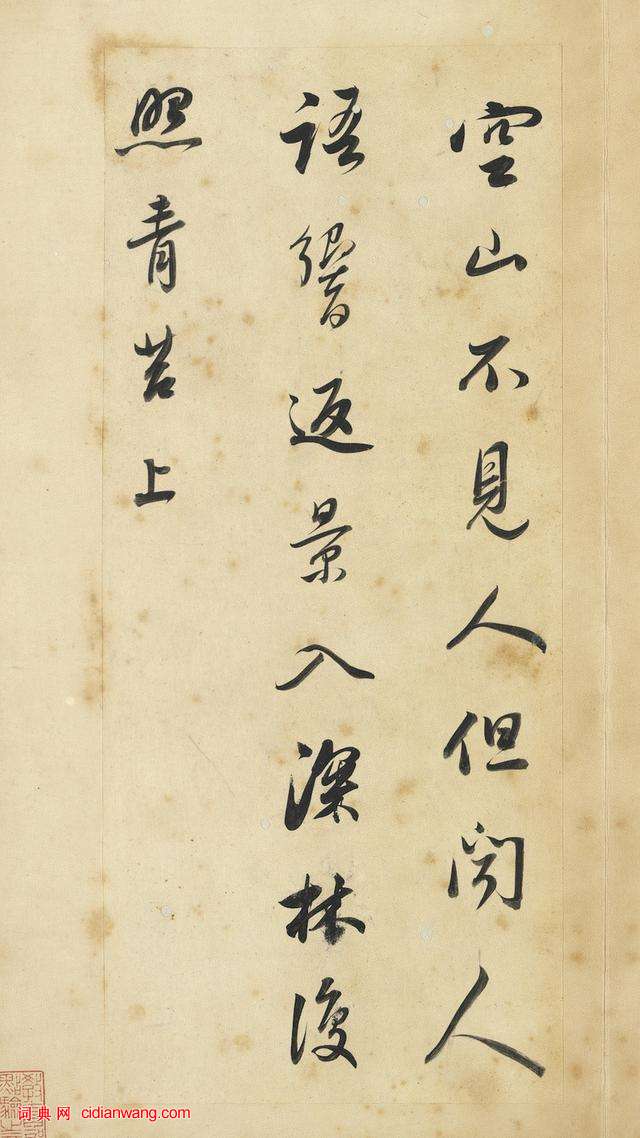 空山不見人但聞人
語響返景入深林復
照青苔上
词典网 cidianwang.com